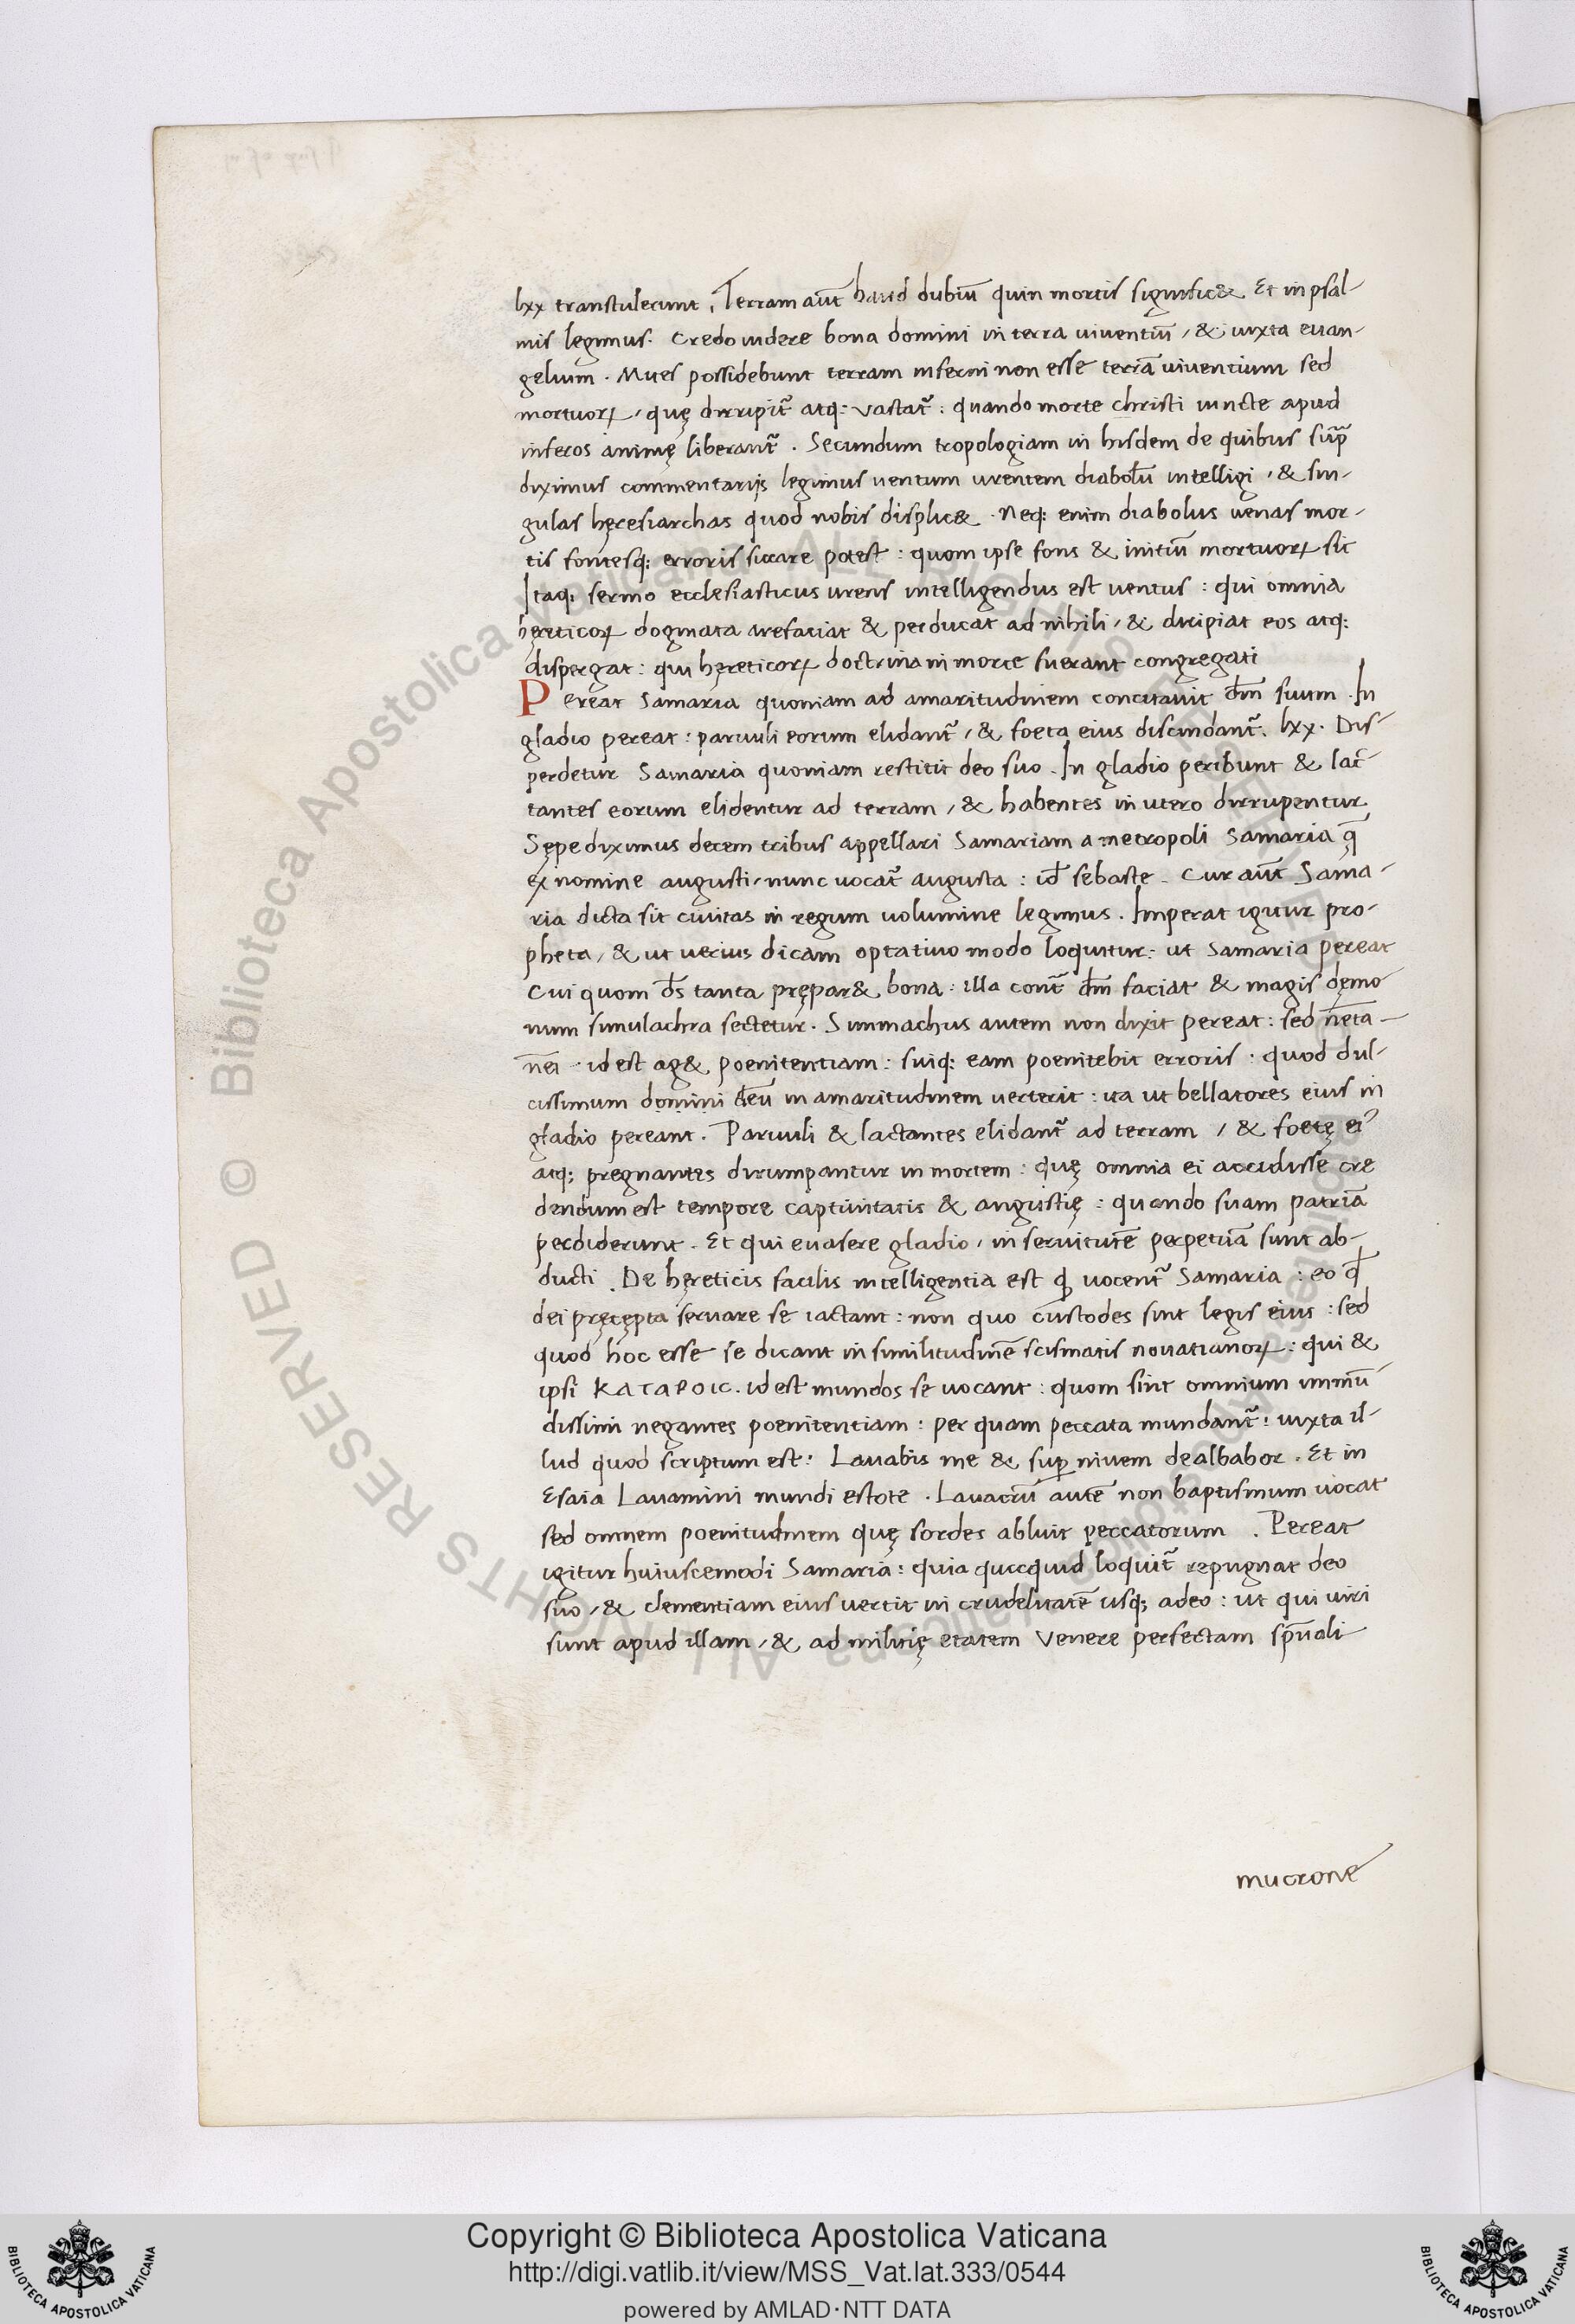 lxx transtulerunt. Terram aut̄ haud dubiū quin mortis signific&. Et in psal-
mis legimus. Credo uidere bona domini in terra uiuentiū, & iuxta euan-
gelium. Mites possidebunt terram inferni non esse terrā uiuentium sed
mortuoꝝ, quę diripit᷑ atq: vastat᷑: quando morte christi iuncte apud
inferos animę liberant᷑. Secundum tropologiam in hisdem de quibus sup̄
diximus commentariis legimus uentum urentem diabolū intelligi, & sin-
gulas hęresiarchas quod nobis displic&. Neq: enim diabolus uenas mor-
tis fontesq: erroris siccare potest: quom ipse fons & initiū mortuoꝝ sit
Itaq: sermo ecclesiasticus urens intelligendus est uentus: qui omnia
hęreticoꝝ dogmata arefaciat & perducat ad nihili, & diripiat eos atq:
dispergat: qui hęreticoꝝ doctrina in morte fuerant congregati
Pereat Samaria quoniam ad amaritudinem concitauit dm̄ suum. In
gladio pereat: paruuli eorum elidant᷑, & foeta eius discindant᷑. lxx. Dis-
perdetur Samaria quoniam restitit deo suo. In gladio peribunt & lac-
tantes eorum elidentur ad terram, & habentes in utero dirrupentur
Sępe diximus decem tribus appellari Samariam a metropoli Samaria q̄
ex nomine augusti, nunc uocat᷑ augusta: id̄ sebaste. Cur aut̄ Sama-
ria dicta sit ciuitas in regum uolumine legimus. Imperat igitur pro-
pheta, & ut uerius dicam optatiuo modo loquitur: ut Samaria pereat
Cui quom ds̄ tanta prępar& bona: illa cont᷑ dm̄ faciat & magis dęmo
num simulachra sectetur. Simmachus autem non dixit pereat: sed
id est ag& poenitentiam: suiq: eam poenitebit erroris: quod dul-
cissimum domini deū in amaritudinem uerterit: ita ut bellatores eius in
gladio pereant. Paruuli & lactantes elidant᷑ ad terram, & foetę ei᾿
atq; pregnantes dirumpantur in mortem: quę omnia ei accidisse cre
dendum est tempore captiuitatis & angustię: quando suam patriā
perdiderunt. Et qui euasere gladio, in seruitutē perpetuā sunt ab-
ducti. De hęreticis facilis intelligentia est ꝙ uocent᷑ Samaria: eo q̄
dei pręcępta seruare se iactant: non quo custodes sint legis eius: sed
quod hoc esse se dicant in similitudinē scismatis nouatianoꝝ: qui &
ipsi ΚΑΤΑΡΟΙC. id est mundos se uocant: quom sint omnium immū
dissimi negantes poenitentiam: per quam peccata mundant᷑: iuxta il-
lud quod scriptum est: Lauabis me & suꝑ niuem dealbabor. Et in
Esaia Lauamini mundi estote. Lauacrū autē non baptismum uocat
sed omnem poenitudinem quę sordes abluit peccatorum. Pereat
igitur huiuscemodi Samaria: quia quicquid loquit᷑ repugnat deo
suo, & clementiam eius uertit in crudelitatē usq; adeo: ut qui uiri
sunt apud illam, & ad militię etatem Venere perfectam sp̄uali
mucrone
Copyright © Biblioteca Apostolica Vaticana
http://digi.vatlib.it/view/MSS_Vat.lat.333/0544
powered by AMLAD·NTT DATA